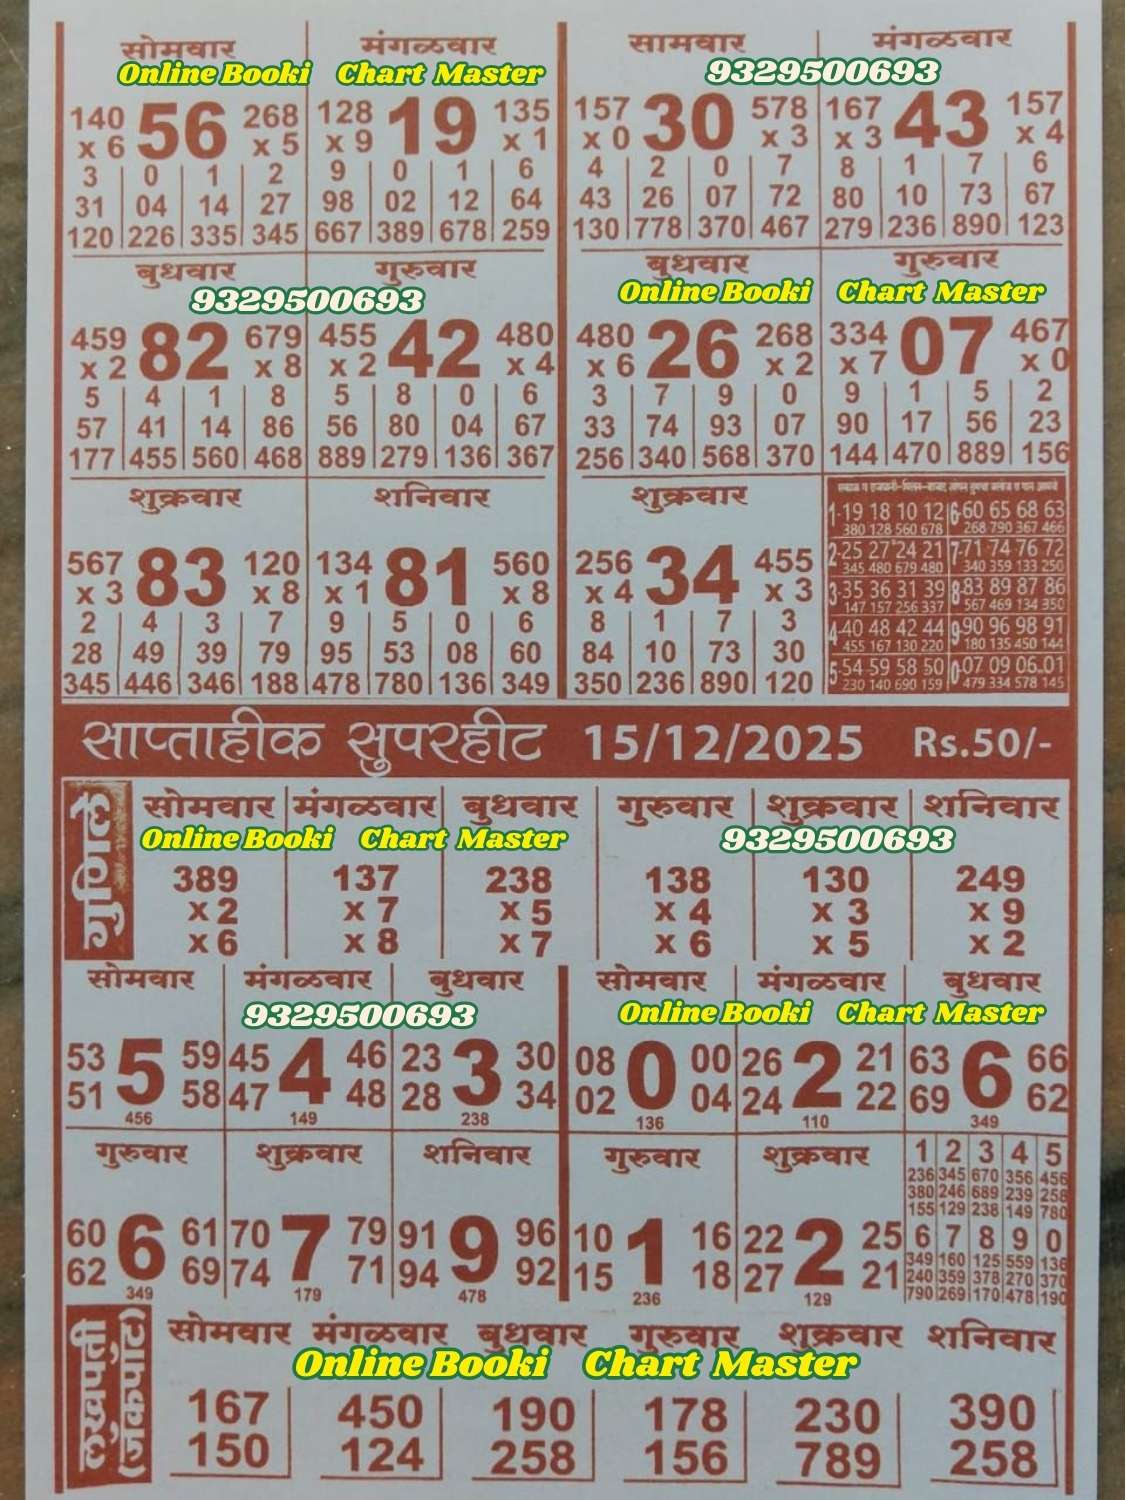 सोमवार मंगळवार सामवार मंगळवार
Online Booki Chart Master 9329500693
140 56 268 128 19 135 157 30 578 167 43 157
x 6 x 5 x 9 x 1 x 0 x 3 x 3 x 4
3 0 1 2 9 0 1 6 4 2 0 7 8 1 7 6
31 04 14 27 98 02 12 64 43 26 07 72 80 10 73 67
120 226 335 345 667 389 678 259 130 778 370 467 279 236 890 123
बुधवार गुरुवार बुधवार गुरुवार
9329500693 Online Booki Chart Master
459 82 679 455 42 480 480 26 268 334 07 467
x 2 x 8 x 2 x 4 x 6 x 2 x 7 x 0
5 4 1 8 5 8 0 6 3 7 9 0 9 1 5 2
57 41 14 86 56 80 04 67 33 74 93 07 90 17 56 23
177 455 560 468 889 279 136 367 256 340 568 370 144 470 889 156
शुक्रवार शनिवार शुक्रवार
567 83 120 134 81 560 256 34 455
x 3 x 8 x 1 x 8 x 4 x 3
2 4 3 7 9 5 0 6 8 1 7 3
28 49 39 79 95 53 08 60 84 10 73 30
345 446 346 188 478 780 136 349 350 236 890 120
1-19 18 10 12 6-60 65 68 63
380 128 560 678 268 790 367 466
2-25 27 24 21 7-71 74 76 72
345 480 679 480 340 359 133 250
3-35 36 31 39 8-83 89 87 86
147 157 256 337 567 469 134 350
4-40 48 42 44 9-90 96 98 91
455 167 130 220 180 135 450 144
5-54 59 58 50 0-07 09 06.01
230 140 690 159 479 334 578 145
साप्ताहीक सुपरहीट 15/12/2025 Rs.50/-
गुणिले
सोमवार मंगळवार बुधवार गुरुवार शुक्रवार शनिवार
Online Booki Chart Master 9329500693
389 137 238 138 130 249
x 2 x 7 x 5 x 4 x 3 x 9
x 6 x 8 x 7 x 6 x 5 x 2
सोमवार मंगळवार बुधवार सोमवार मंगळवार बुधवार
9329500693 Online Booki Chart Master
53 5 59 45 4 46 23 3 30 08 0 00 26 2 21 63 6 66
51 58 47 48 28 34 02 04 24 22 69 62
456 149 238 136 110 349
गुरुवार शुक्रवार शनिवार गुरुवार शुक्रवार
60 6 61 70 7 79 91 9 96 10 1 16 22 2 25
62 69 74 71 94 92 15 18 27 21
349 179 478 236 129
1 2 3 4 5
236 345 670 356 456
380 246 689 239 258
155 129 238 149 780
6 7 8 9 0
349 160 125 559 136
240 359 378 270 370
790 269 170 478 190
लखपती
(जकपॉट)
सोमवार मंगळवार बुधवार गुरुवार शुक्रवार शनिवार
Online Booki Chart Master
167 450 190 178 230 390
150 124 258 156 789 258